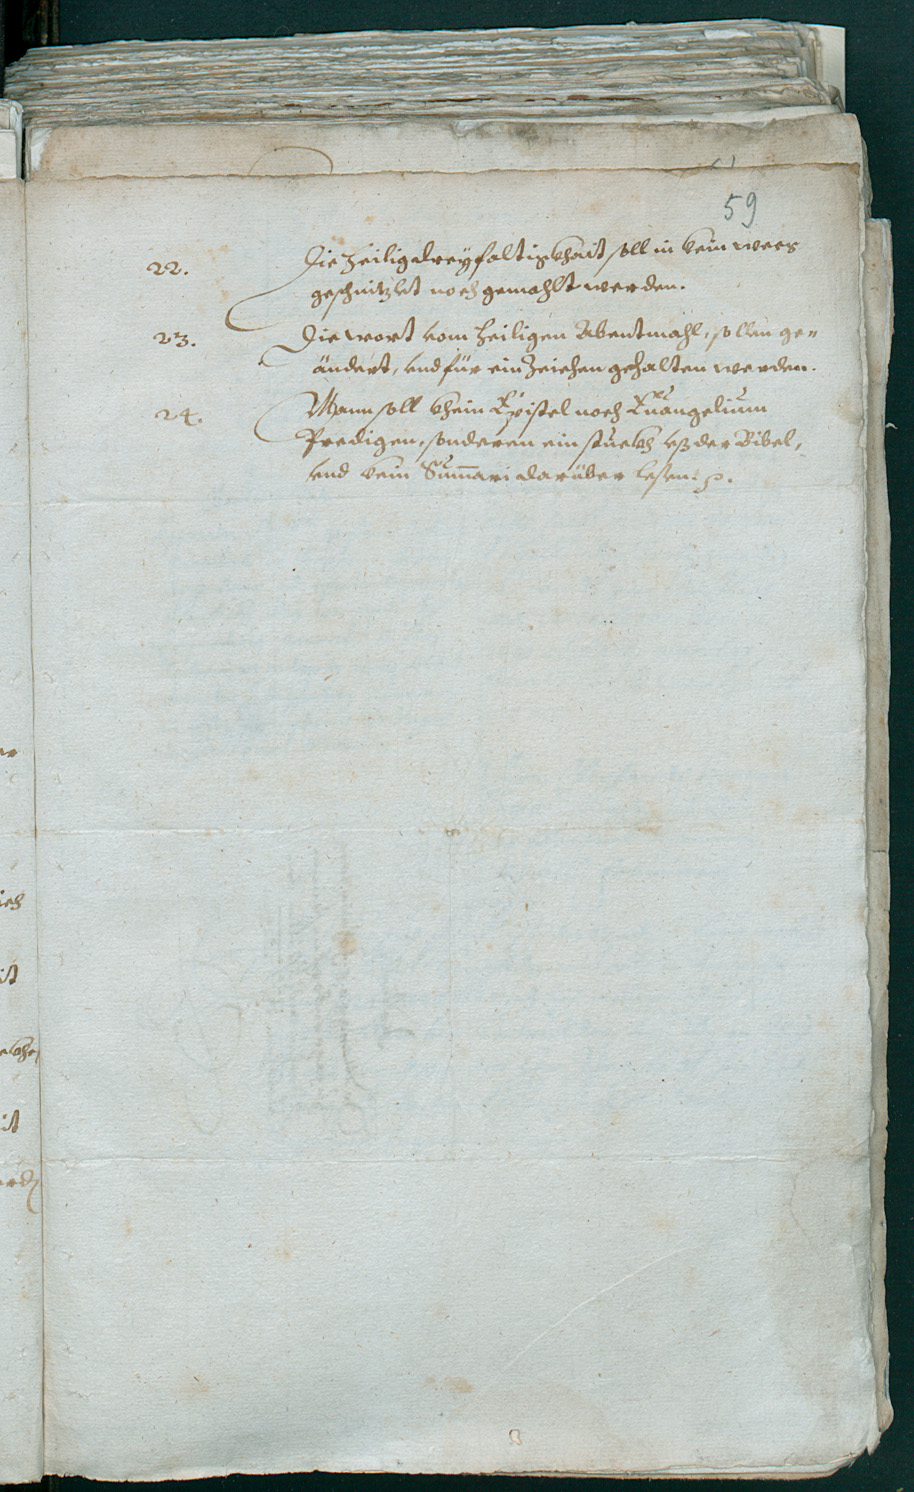 59
22. Die heilig dreyfaltigkhait soll in kein weeg
geschnitzlet noch gemahlt werden.
23. Die wort vom heiligen Abentmahl, sollen ge„
ändert, vnd für ein Zeichen gehalten werden.
24. Mann soll khein Epistel noch Euangelium
Predigen, sonderen ein stuckh vß der Bibel,
vnd kein Sum̄ari darüber lesen.